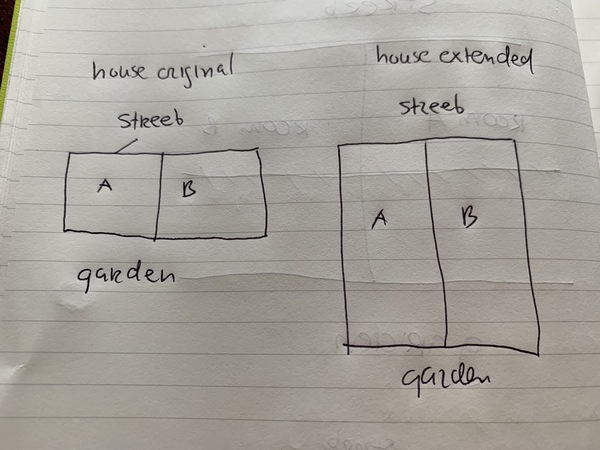 house original
street
A
B
garden
house extended
street
A
B
garden